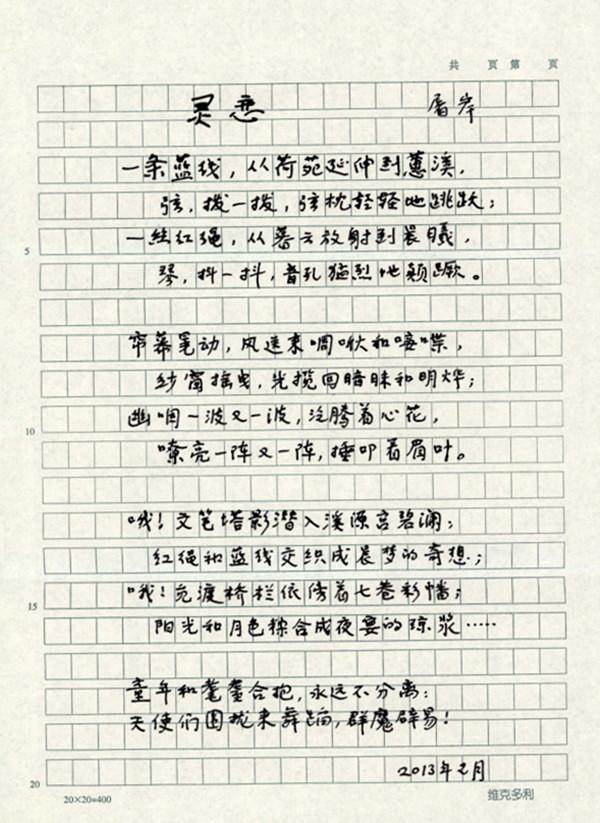 共 页 第 页
灵恋 屠岸
一条蓝线，从荷苑延伸到蕙溪，
弦，拨一拨，弦枕轻轻地跳跃；
5
一丝红绳，从暮云放射到晨曦，
琴，抖一抖，音孔猛烈地颠蹶。
帘幕晃动，风送来啁啾和喋，
纱窗摇曳，光揽回暗昧和明烨；
10
幽咽一波又一波，沸腾着心花，
嘹亮一阵又一阵，捶叩着眉叶。
哦！文笔塔影潜入溪源宫碧澜；
红绳和蓝线交织成晨梦的奇想；
15
哦！危渡桥栏依傍着七卷彩幡；
阳光和月色糅合成夜宴的琼浆……
童年和耄耋合抱，永远不分离：
天使们围拢来舞蹈，群魔辟易！
2013年元月
20
20×20=400
维克多利